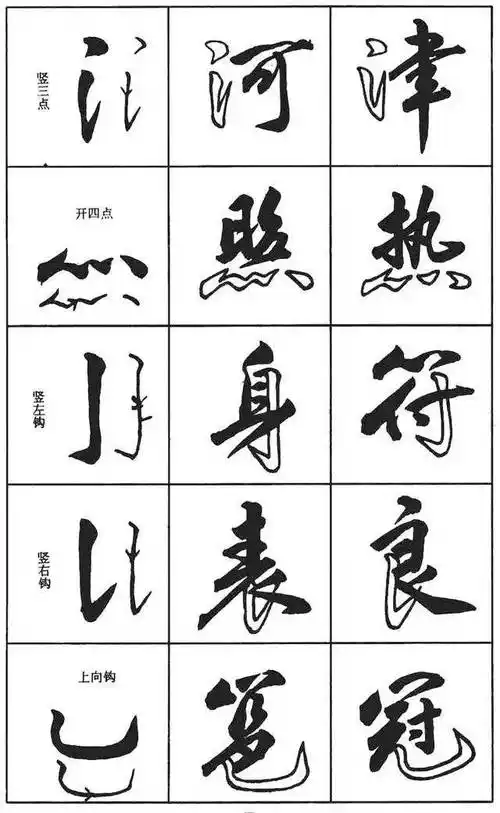 竖三点
河 津
开四点
照 热
竖左钩
身 符
竖右钩
表 良
上向钩
冠